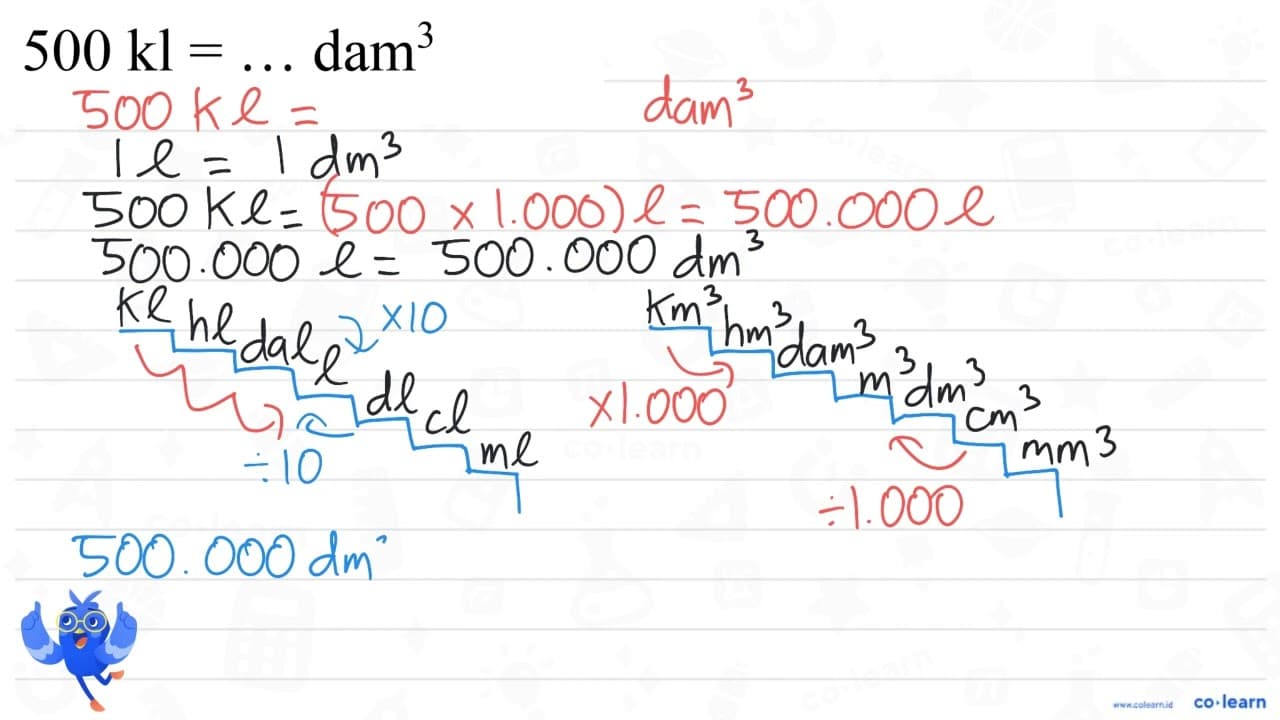 500 kl = ... dam³
500 Kl = dam³
1 l = 1 dm³
500 Kl = (500 x 1.000) l = 500.000 l
500.000 l = 500.000 dm³
kl hl dal l dl cl ml
x10
÷10
Km³ hm³ dam³ m³ dm³ cm³ mm³
x1.000
÷1.000
500.000 dm
www.colearn.id co·learn